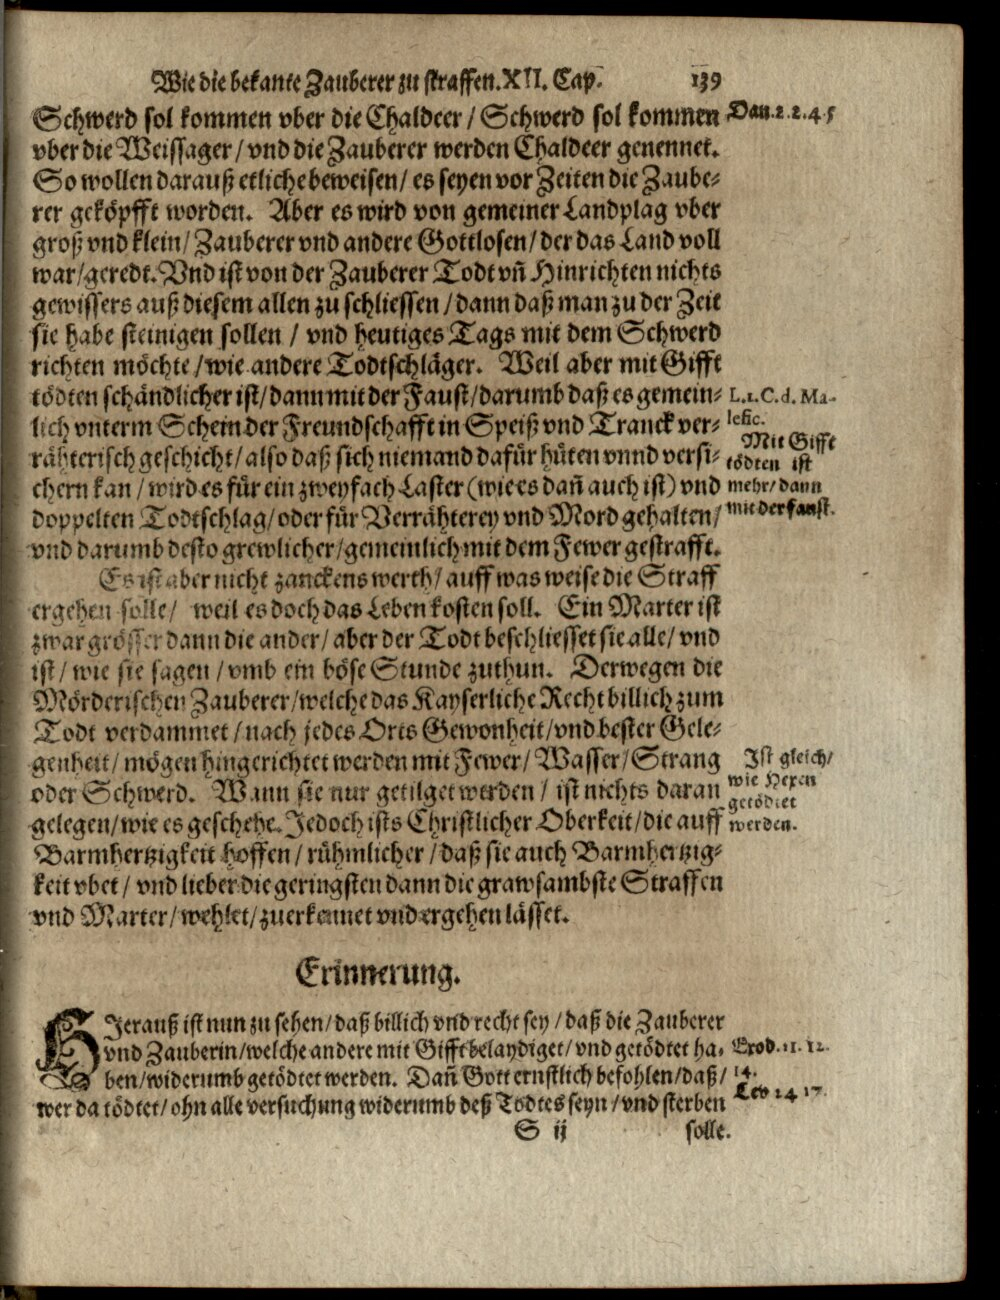 Wie die bekante Zauberer zu straffen. XII. Cap. 139
Schwerd sol kommen vber die Chaldeer / Schwerd sol kommen
vber die Weissager / vnd die Zauberer werden Chaldeer genennet.
So wollen darauß etliche beweisen / es seyen vor Zeiten die Zaube-
rer geköpfft worden. Aber es wird von gemeiner Landplag vber
groß vnd klein / Zauberer vnd andere Gottlosen / der das Land voll
war / geredt. Vnd ist von der Zauberer Todt vñ Hinrichten nichts
gewissers auß diesem allen zu schliessen / dann daß man zu der Zeit
sie habe steinigen sollen / vnd heutiges Tags mit dem Schwerd
richten möchte / wie andere Todtschläger. Weil aber mit Gifft
tödten schändlicher ist / dann mit der Faust / darumb daß es gemein-
lich vnterm Schein der Freundschafft in Speiß vnd Tranck ver-
rähterisch geschicht / also daß sich niemand dafür hüten vnnd versi-
chern kan / wird es für ein zweyfach Laster (wie es dañ auch ist) vnd
doppelten Todtschlag / oder für Verrähterey vnd Mord gehalten /
vnd darumb desto grewlicher / gemeinlich mit dem Fewer gestrafft.
Es ist aber nicht zanckens werth / auff was weise die Straff
ergehen solle / weil es doch das Leben kosten soll. Ein Marter ist
zwar grösser dann die ander / aber der Todt beschliesset sie alle / vnd
ist / wie sie sagen / vmb ein böse Stunde zuthun. Derwegen die
Mörderischen Zauberer / welche das Kayserliche Recht billich zum
Todt verdammet / nach jedes Orts Gewonheit / vnd bester Gele-
genheit / mögen hingerichtet werden mit Fewer / Wasser / Strang
oder Schwerd. Wann sie nur getilget werden / ist nichts daran
gelegen / wie es geschehe. Jedoch ists Christlicher Oberkeit / die auff
Barmhertzigkeit hoffen / rühmlicher / daß sie auch Barmhertzig-
keit vbet / vnd lieber die geringsten dann die grawsambste Straffen
vnd Marter / wehlet / zuerkennet vnd ergehen lässet.
Dan. 2. 2. 4. 5
L. 1. C. d. Ma-
lefic.
Mit Gifft
tödten ist
mehr / dann
mit der faust.
Ist gleich /
wie Hexen
getödtet
werden.
Erinnerung.
HIerauß ist nun zu sehen / daß billich vnd recht sey / daß die Zauberer
vnd Zauberin / welche andere mit Gifft belaydiget / vnd getödtet ha-
ben / widerumb getödtet werden. Dañ Gott ernstlich befohlen / daß /
wer da tödtet / ohn alle versuchung widerumb deß Todtes seyn / vnd sterben
Exod. 21. 12.
14.
Lev 24 17.
S ij solle.